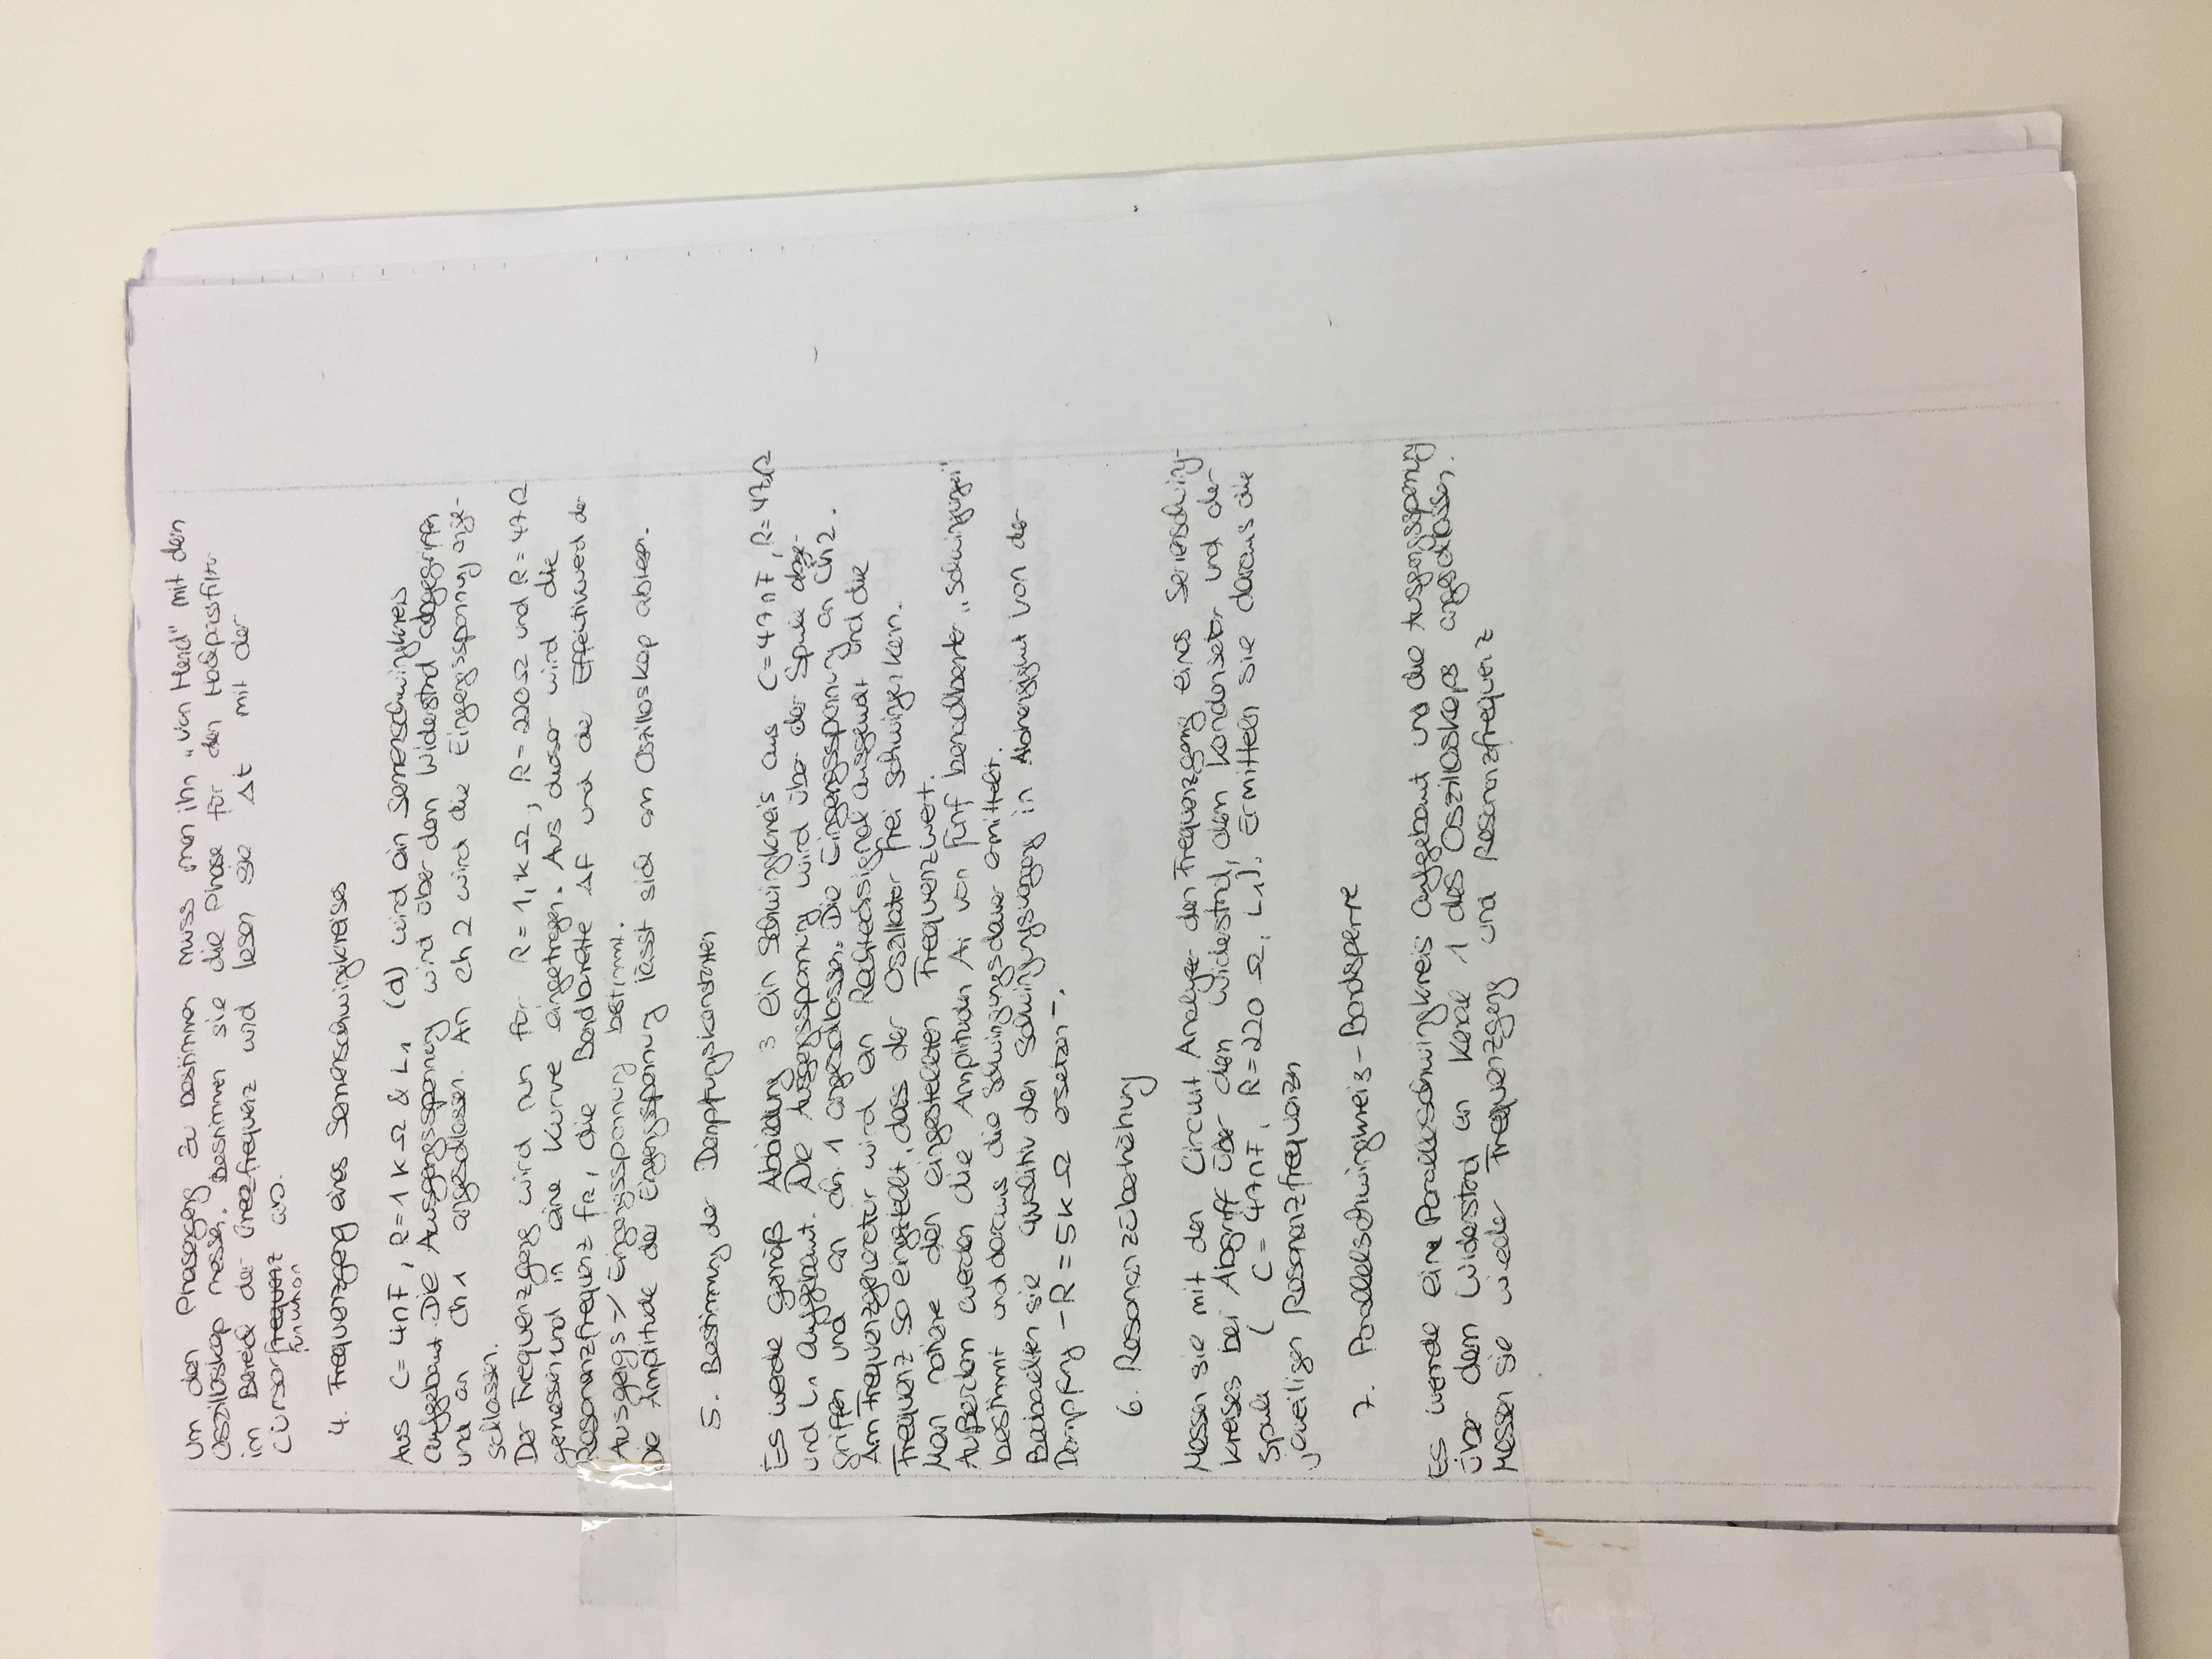 Um den Phasengang zu bestimmen muss man ihn „von Hand" mit dem
Oszilloskop messen. Bestimmen sie die Phase für den Hochpassfilter
im Bereich der Grenzfrequenz und lesen sie Δt mit der
Cursorfrequenz ab.
funktion
4. Frequenzgang eines Serienschwingkreises
Aus C = 4nF, R = 1 kΩ & L1 (d) wird ein Serienschwingkreis
aufgebaut. Die Ausgangsspannung wird über dem Widerstand abgegriffen
und an Ch 1 angeschlossen. An Ch 2 wird die Eingangsspannung ange-
schlossen.
Der Frequenzgang wird nun für R = 1, kΩ, R = 220Ω und R = 47Ω
gemessen und in eine Kurve eingetragen. Aus dieser wird die
Resonanzfrequenz fR, die Bandbreite Δf und der Effektivwert der
Ausgangs-/Eingangsspannung bestimmt.
Die Amplitude der Eingangsspannung lässt sich am Oszilloskop ablesen.
5. Bestimmung der Dämpfungskonstanten
Es werde gemäß Abbildung 3 ein Schwingkreis aus C = 47nF, R = 47Ω
und L1 aufgebaut. Die Ausgangsspannung wird über der Spule abge-
griffen und an Ch. 1 angeschlossen. Die Eingangsspannung an Ch 2.
Am Frequenzgenerator wird ein Rechtecksignal ausgewält und die
Frequenz so eingstellt, dass der Oszillator frei schwingen kann.
Man notiere den eingestellten Frequenzwert.
Außerdem werden die Amplituden Ai von fünf benachbarter „Schwingungen"
bestimmt und daraus die Schwingungsdauer ermittelt.
Beobachten sie qualitiv den Schwingungsvorgang in Abhängigkeit von der
Dämpfung - R = 5kΩ ersetzen -.
6. Resonanzüberhöhung
Messen sie mit den Circuit Analyzer den Frequenzgang eines Serienschwing-
kreises bei Abgriff über dem Widerstand, dem Kondensator und der
Spule ( C = 47nF, R = 220 Ω, L1). Ermitteln sie daraus die
jeweiligen Resonanzfrequenzen
7. Parallelschwingkreis - Bandsperre
Es werde eine Parallelschwingkreis aufgebaut und die Ausgangsspannung
über dem Widerstand an Kanal 1 des Oszilloskops angeschlossen.
Messen sie wieder Frequenzgang und Resonanzfrequenz